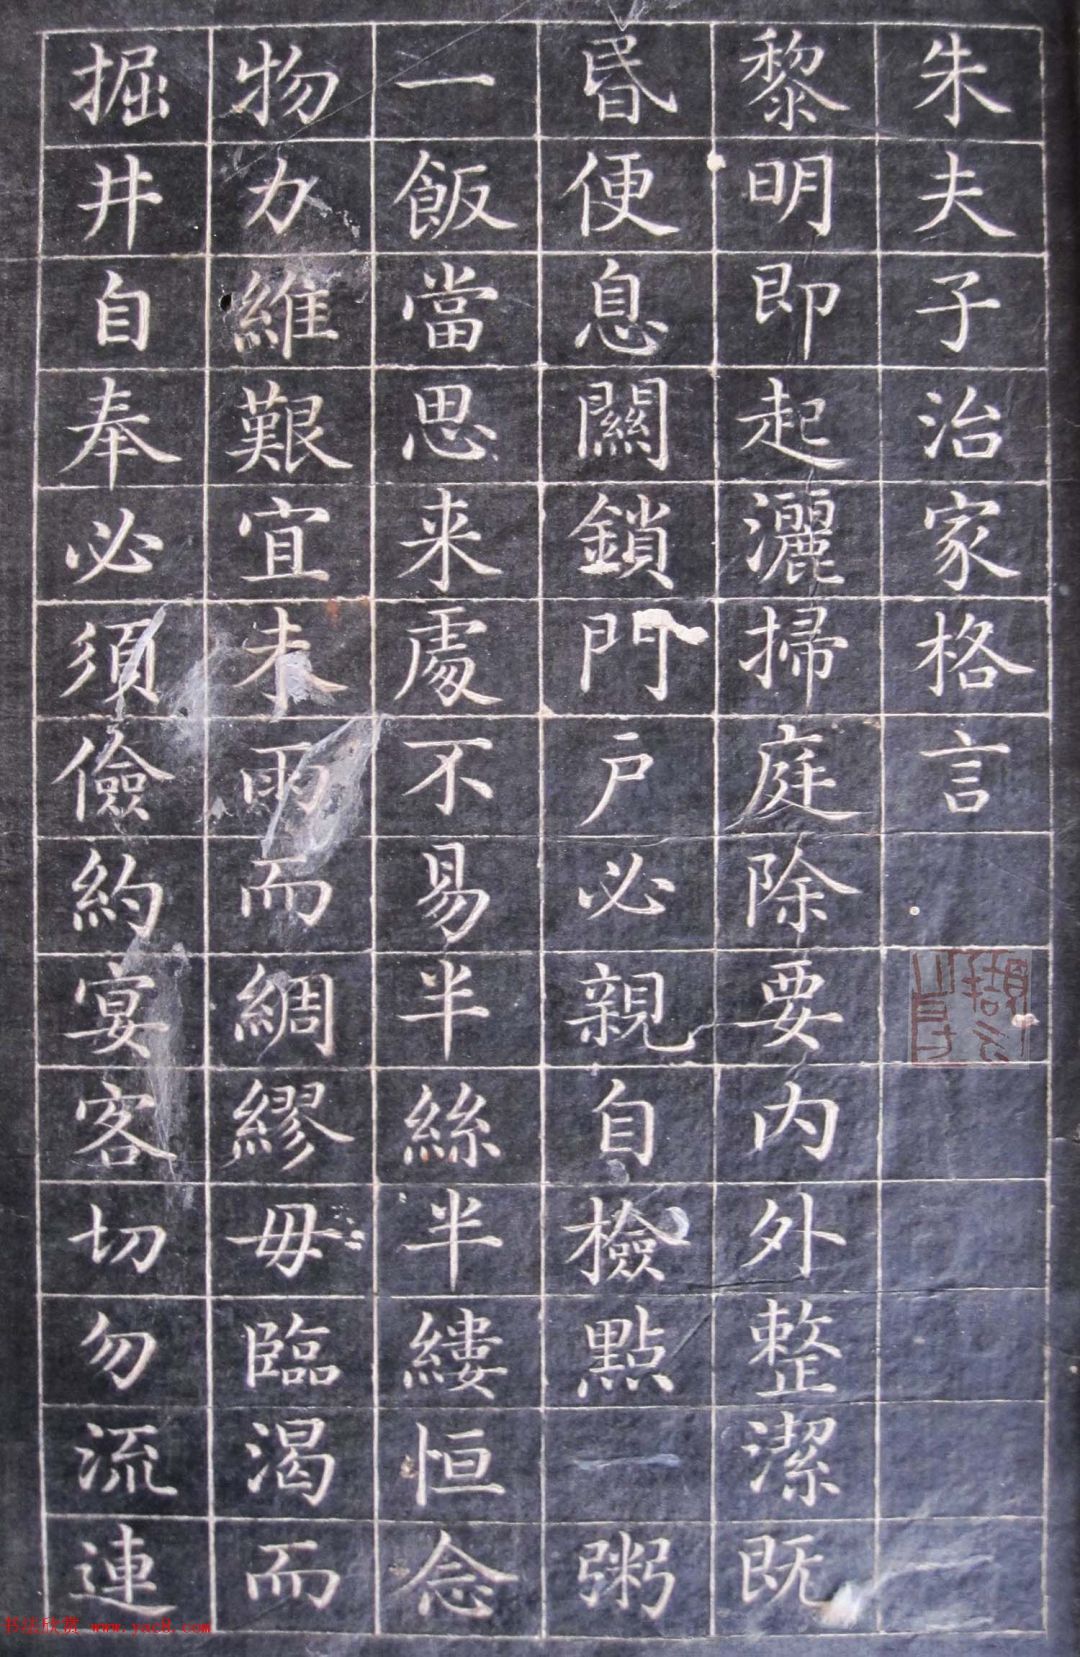 朱夫子治家格言
黎明即起灑掃庭除要内外整潔既
昬便息關鎖門戶必親自檢點一粥
一飯當思来處不易半絲半縷恒念
物力維艱宜未雨而綢繆毋臨渴而
掘井自奉必須儉約宴客切勿流連
书法欣赏 www.yac8.com